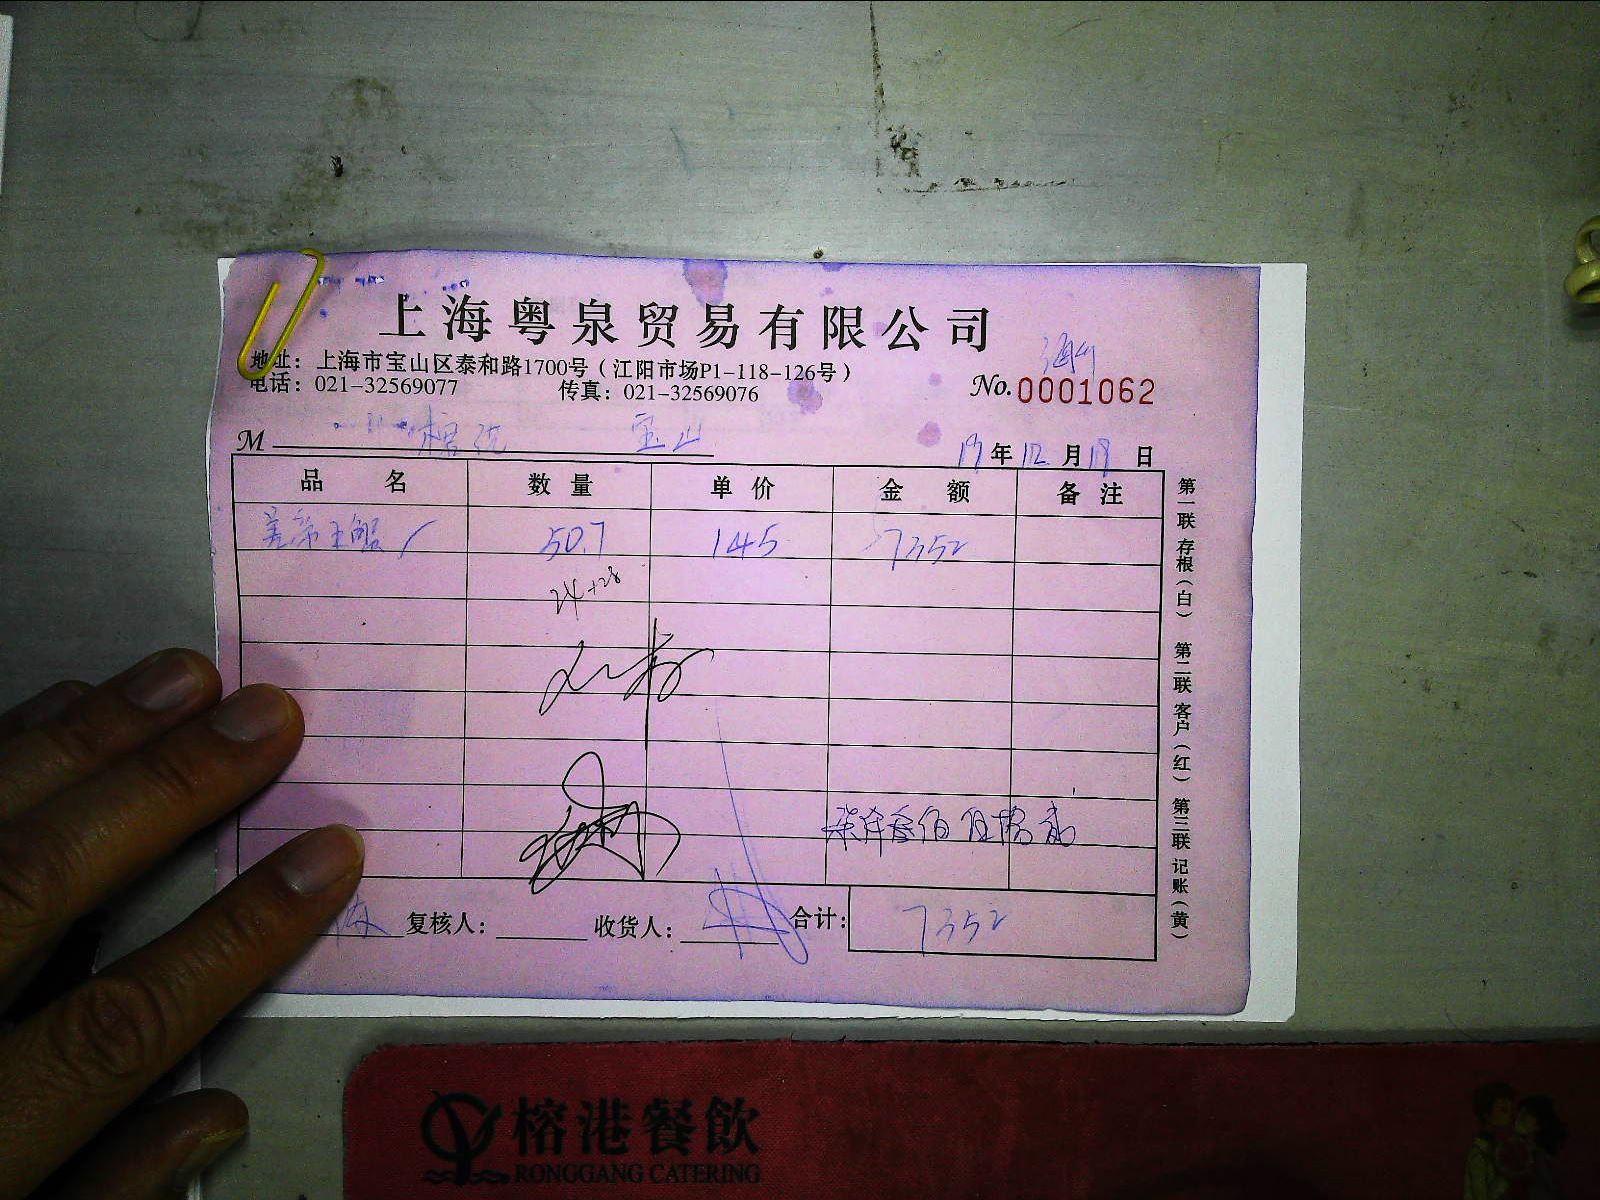 上海粤泉贸易有限公司
地址：上海市宝山区泰和路1700号（江阳市场P1-118-126号）
电话：021-32569077 传真：021-32569076
No.0001062
M 宝山
19年12月18日
品名 数量 单价 金额 备注
帝王蟹 50.7 145 7352
24+28
柒仟叁佰伍拾贰
复核人： 收货人： 合计： 7352
第一联 存根（白） 第二联 客户（红） 第三联 记账（黄）
榕港餐飲
RONGGANG CATERING